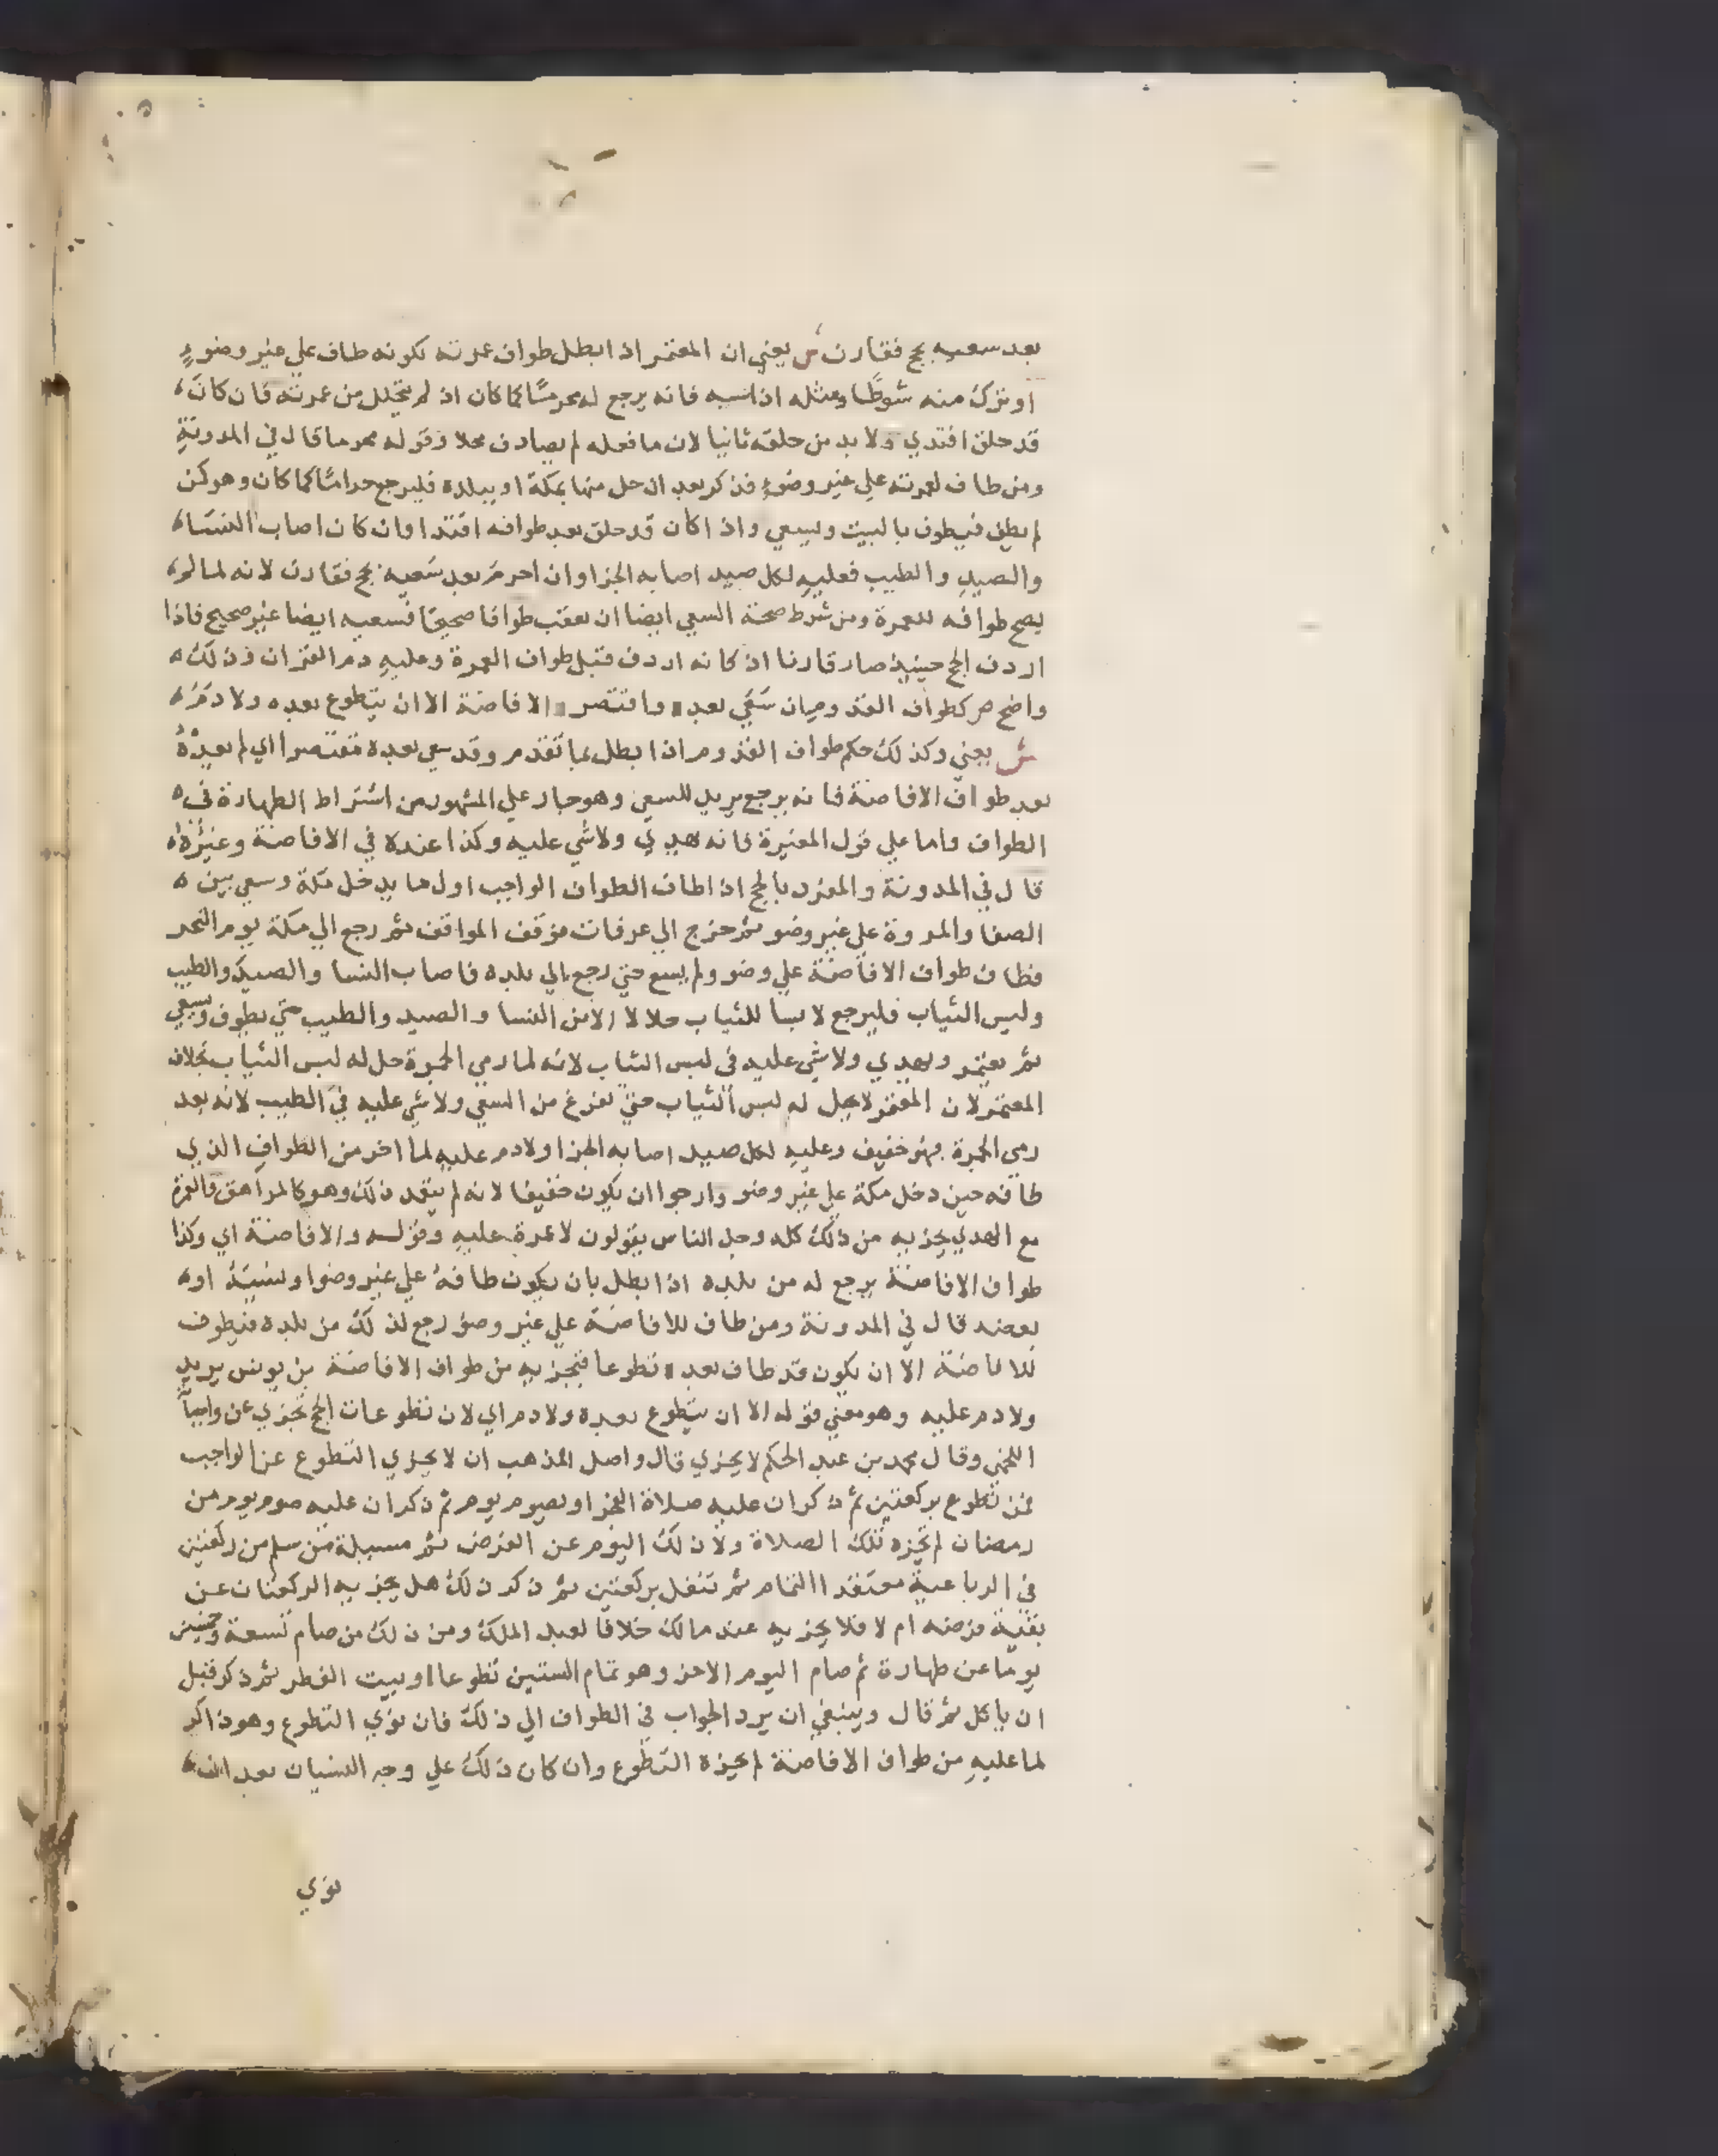 بعد سعيه بحج فقارن ش يعني ان المعتمر اذا ابطل طواف عمرته لكونه طاف علي غير وضوءٍ
او ترك منه شوطًا ومثله اذا نسيه فانه يرجع له محرمًا كما كان اذ لم يتحلل من عمرته فان كان
قد حلق افتدي ولا بد من حلقه ثانيا لان ما فعله لم يصادف محلا وقوله محرما قال في المدونة
ومن طاف لعمرته علي غير وضوءٍ فذكر بعد ان حل منها بمكة او ببلده فليرجع حرامًا كما كان وهو كمن
لم يطف فيطوف بالبيت ويسعي واذا كان قد حلق بعد طوافه افتدا وان كان اصاب النساء
والصيد والطيب فعليه لكل صيد اصابه الجزا وان احرم بعد سعيه بحج فقارن لانه لما لم
يصح طوافه للعمرة ومن شرط صحة السعي ايضا ان يعقب طوافا صحيحًا فسعيه ايضا غير صحيح فاذا
اردف الحج حينيذ صار قارنا اذ كانه اردف قبل طواف العمرة وعليه دم القران وذلك
واضح ص كطواف القدوم ان سعي بعده واقتصر والافاضة الا ان يتطوع بعده ولا دم
ش يعني وكذلك حكم طواف القدوم اذا ابطل بما تقدم وقد سعي بعده مقتصرا اي لم يعده
بعد طواف الافاضة فانه يرجع يريد للسعي وهو جار علي المشهور من اشتراط الطهارة في
الطواف واما علي قول المغيرة فانه يهدي ولا شي عليه وكذا عنده في الافاضة وغيرها
قال في المدونة والمفرد بالحج اذا طاف الطواف الواجب اول ما يدخل مكة وسعي بين
الصفا والمروة علي غير وضو ثم خرج الي عرفات فوقف المواقف ثم رجع الي مكة يوم النحر
فطاف طواف الافاضة علي وضو ولم يسع حتي رجع الي بلده فاصاب النسا والصيد والطيب
ولبس الثياب فليرجع لابسا للثياب حلالا الا من النسا والصيد والطيب حتي يطوف ويسعي
ثم يعتمر ويهدي ولا شي عليه في لبس الثياب لانه لما رمي الجمرة حل له لبس الثياب بخلاف
المعتمر لان المعتمر لا يحل له لبس الثياب حتي يفرغ من السعي ولا شي عليه في الطيب لانه بعد
رمي الجمرة فهو خفيف وعليه لكل صيد اصابه الجزا ولا دم عليه لما اخر من الطواف الذي
طافه حين دخل مكة علي غير وضو وارجوا ان يكون خفيفا لانه لم يتعمد ذلك وهو كالمراهق والعمرة
مع الهدي يجزيه من ذلك كله وجل الناس يقولون لا عمرة عليه وقوله والافاضة اي وكذا
طواف الافاضة يرجع له من بلده اذا بطل بان يكون طافه علي غير وضوا ونسيه او
بعضه قال في المدونة ومن طاف للافاضة علي غير وضو رجع لذلك من بلده فيطوف
للافاضة الا ان يكون قد طاف بعده تطوعا فيجزيه من طواف الافاضة بن يونس يريد
ولا دم عليه وهو معني قوله الا ان يتطوع بعده ولا دم اي لان تطوعات الحج تجزي عن واجباته
اللخمي وقال محمد بن عبد الحكم لا يجزي قال واصل المذهب ان لا يجزي التطوع عن الواجب
فمن تطوع بركعتين ثم ذكر ان عليه صلاة الفجر او يصوم يوم ثم ذكر ان عليه صوم يوم من
رمضان لم تجزه تلك الصلاة ولا ذلك اليوم عن الفرض ثم مسيلة من سلم من ركعتين
في الرباعية معتقدا التمام ثم تنفل بركعتين ثم ذكر ذلك هل يجزيه الركعتان عن
بقية فرضه ام لا فلا يجزيه عند مالك خلافا لعبد الملك ومن ذلك من صام تسعة وخمسين
يومًا عن ظهارة ثم صام اليوم الاخر وهو تمام الستين تطوعا او بيت الفطر ثم ذكر قبل
ان ياكل ثم قال وينبغي ان يرد الجواب في الطواف الي ذلك فان نوي التطوع وهو ذاكر
لما عليه من طواف الافاضة لم يجزه التطوع وان كان ذلك علي وجه النسيان بعد ان
نوي